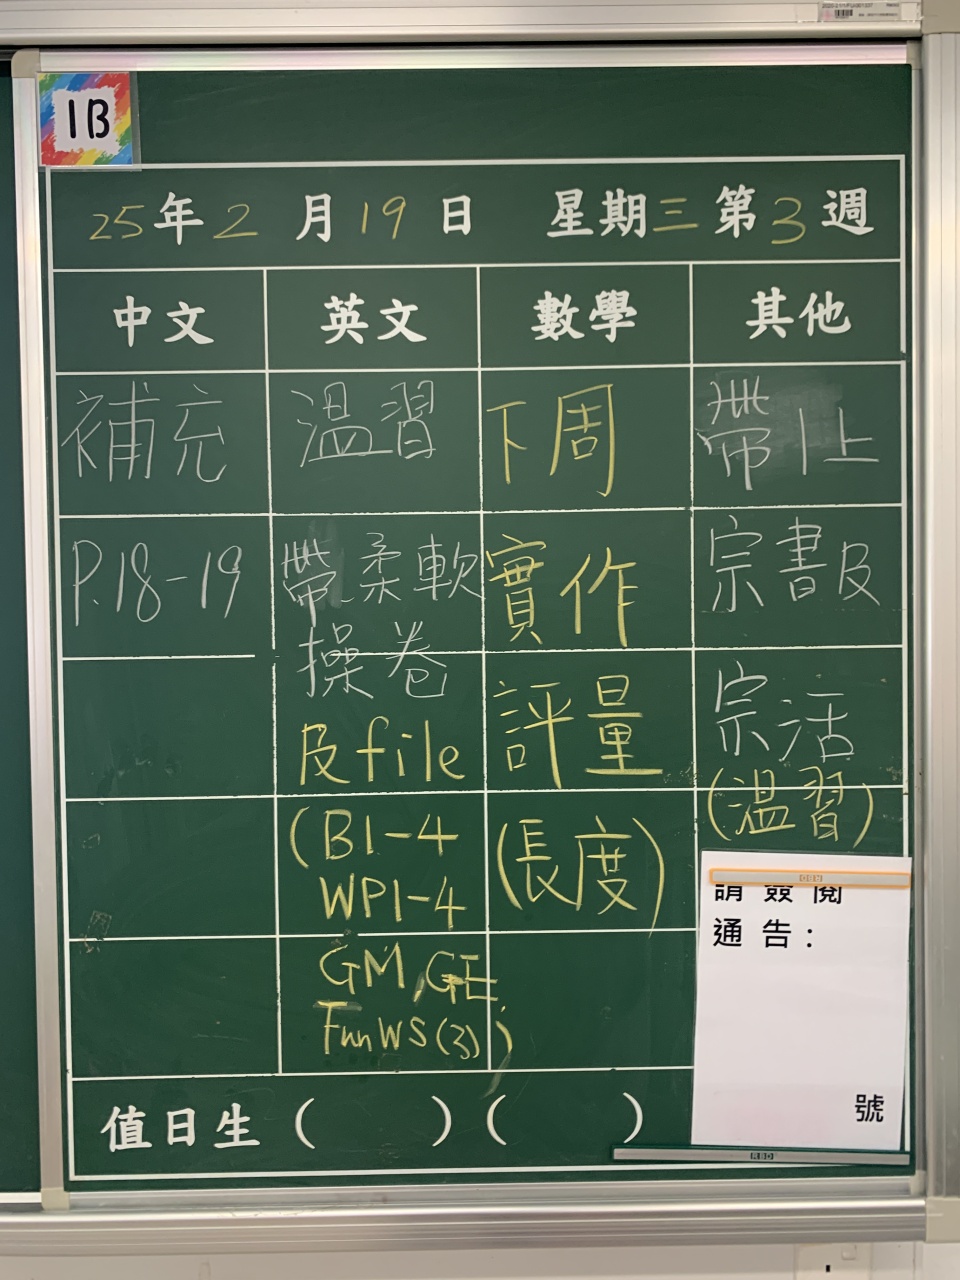 1B
25年2月19日 星期三第3週
中文
補充
P.18-19
英文
溫習
帶柔軟
操卷
及file
(B1-4
WP1-4
GM, GE,
Fun WS(3))
數學
下周
實作
評量
(長度)
其他
帶1上
宗書及
宗活
(溫習)
請簽閱
通告:
號
值日生 ( ) ( )